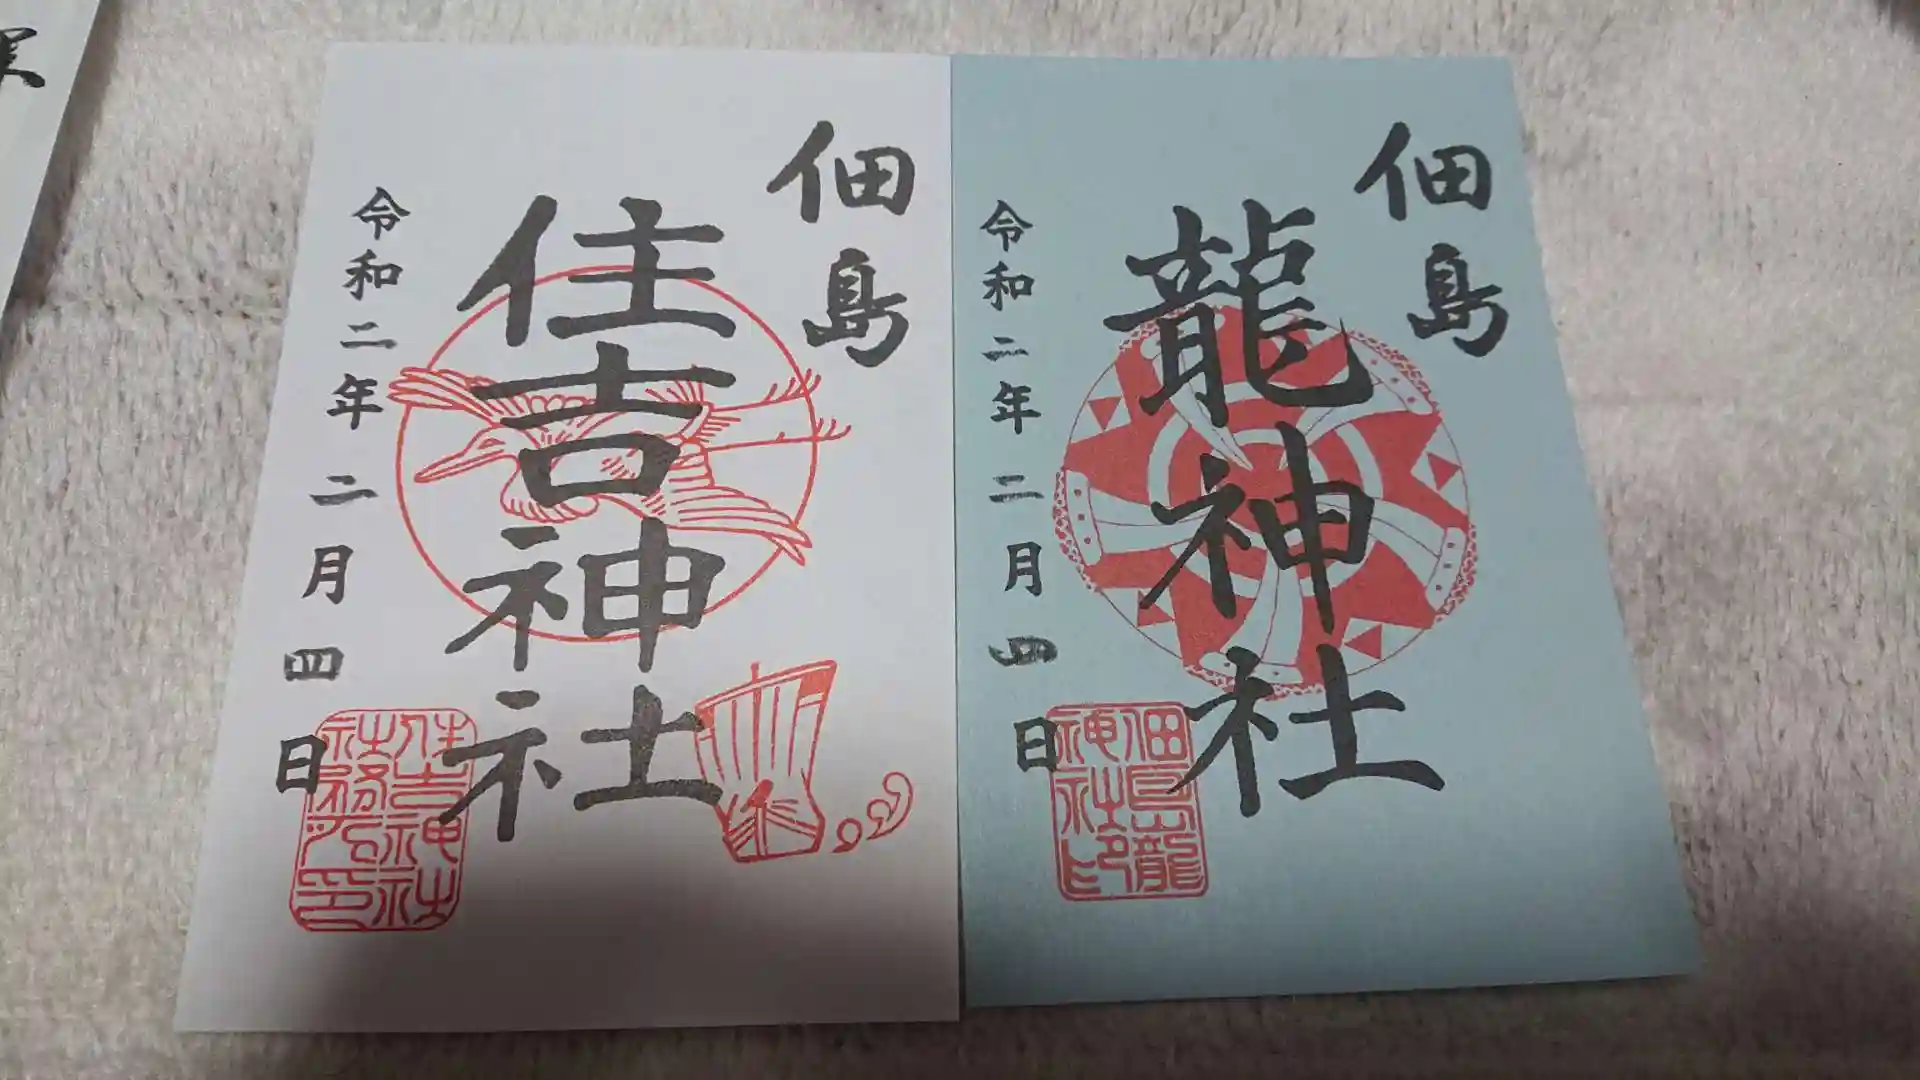 佃島
住吉神社
令和二年二月四日
住吉神社
社務所印
佃島
龍神社
令和二年二月四日
佃島龍
神社印